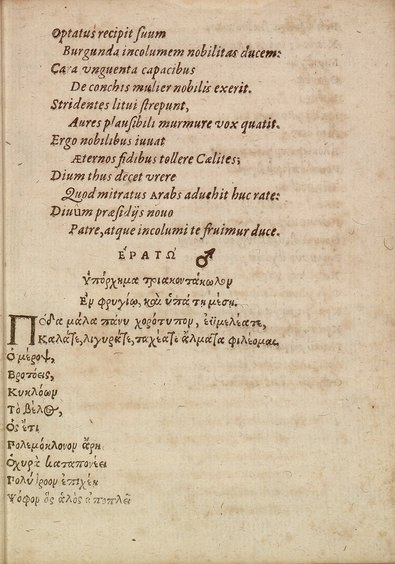 Optatus recipit suum
Burgunda incolumem nobilitas ducem:
Cara vnguenta capacibus
De conchis mulier nobilis exerit.
Stridentes litui strepunt,
Aures plausibili murmure vox quatit.
Ergo nobilibus iuuat
Æternos fidibus tollere Cælites;
Dium thus decet vrere
Quod mitratus Arabs aduehit huc rate:
Diuum præsidijs nouo
Patre, atque incolumi te fruimur duce.
ΕΡΑΤΩ ♂
Ὑπόρχημα τριακοντάκωλον
Ἐν φρυγίῳ, καὶ ὑπάτη μέση.
Πόδα μάλα πάνυ χορότυπον, εὐμελέατε,
Καλάζε, λιγυρίζε, ταχέαζε φιλέομαι.
Ὁ μέροψ,
Βροτόεις,
Κυκλόων
Τὸ βέλος,
Ὃς ἔτι
Πολεμόκλονον ἄρη
Ὀχυρὰ καταπονέει
Ψόφον ὃς ἁλὸς ἀποπλεῖ